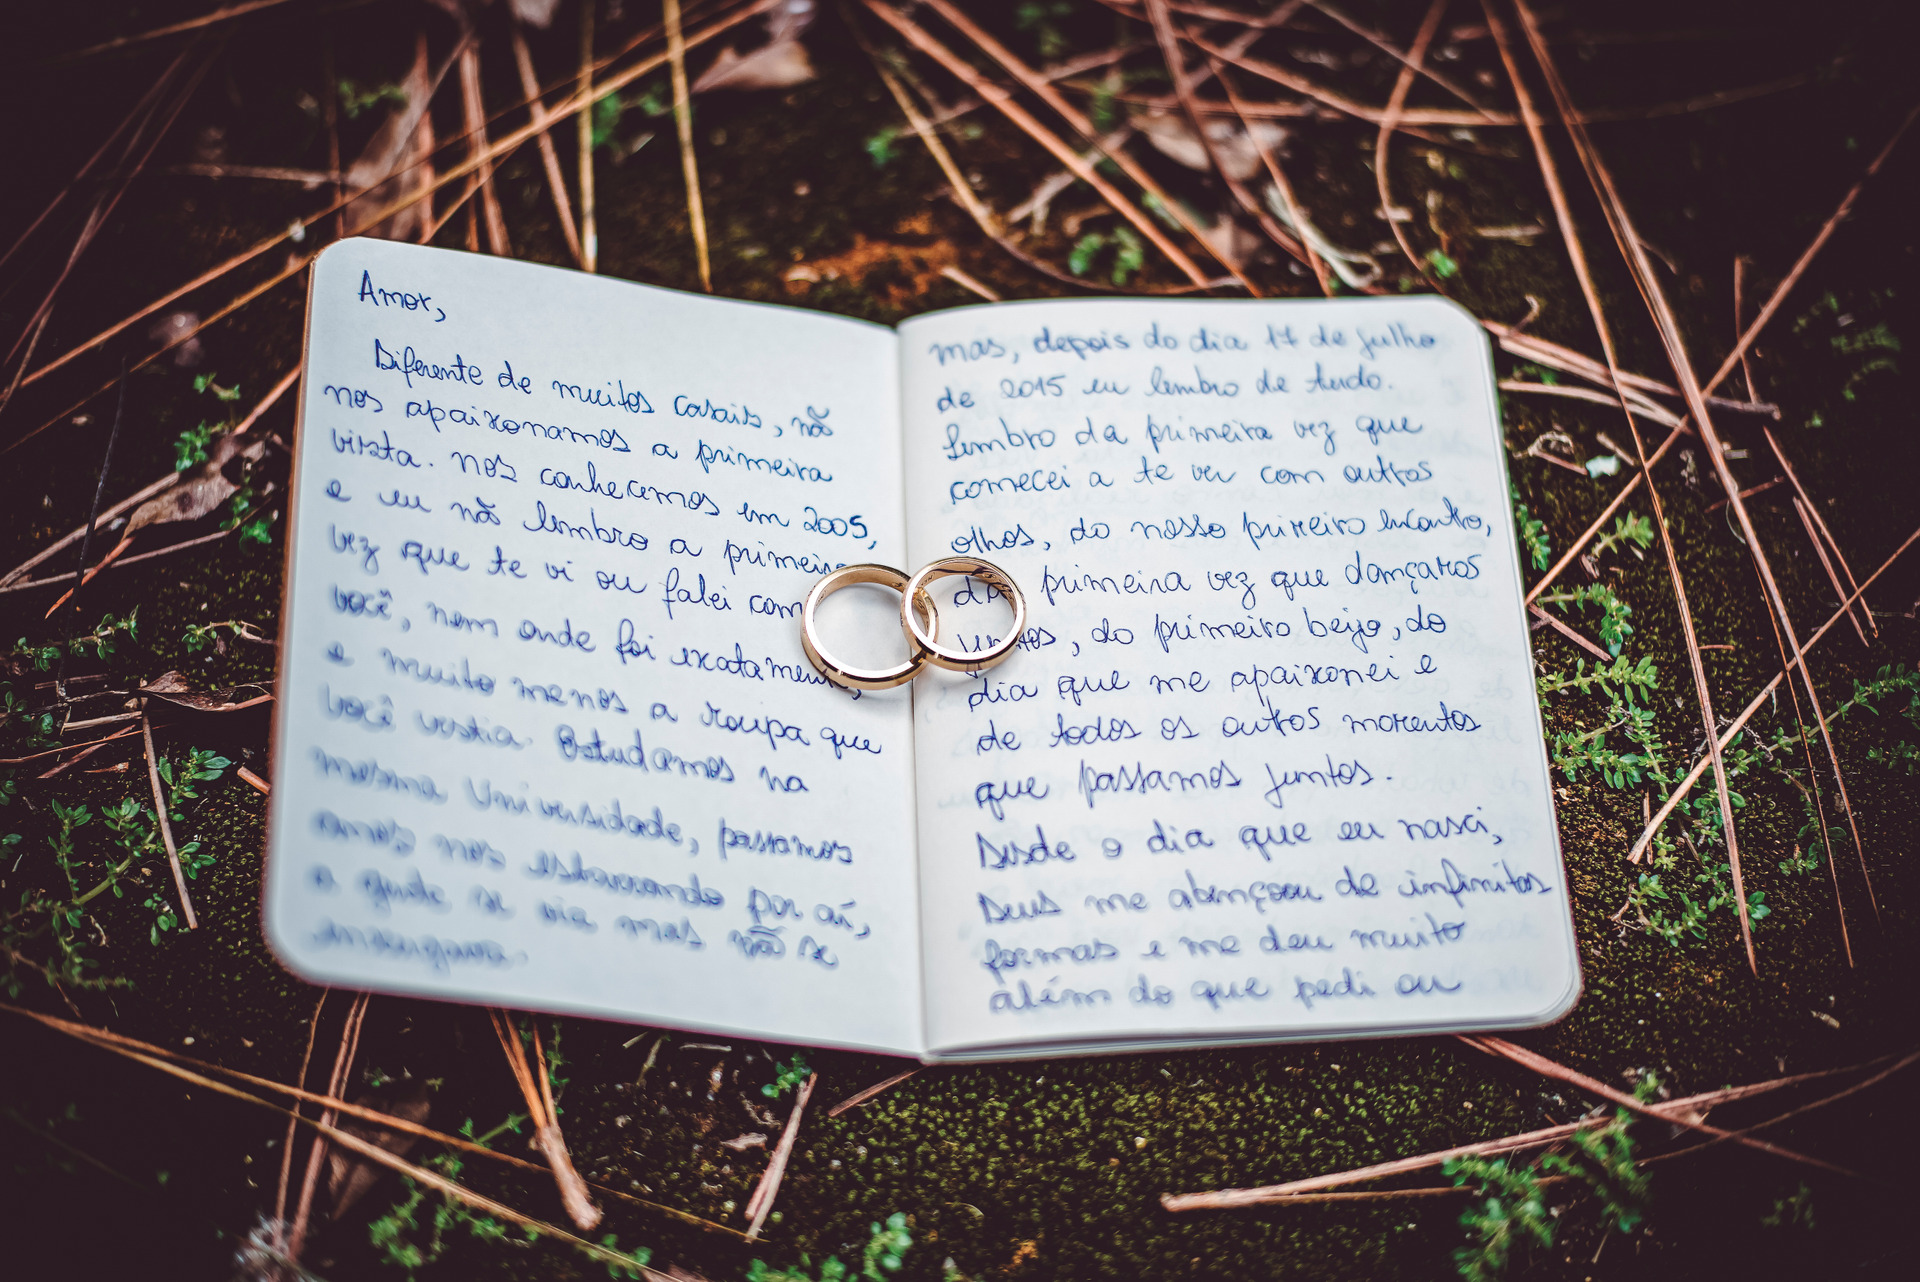 Amor,
Diferente de muitos casais, não
nos apaixonamos a primeira
vista. nos conhecemos em 2005,
e eu não lembro a primeira
vez que te vi ou falei com
você, nem onde foi exatamente,
e muito menos a roupa que
você vestia. Estudamos na
mesma Universidade, passamos
anos nos esbarrando por aí,
a gente se via mas não se
enxergava.
mas, depois do dia 17 de julho
de 2015 eu lembro de tudo.
Lembro da primeira vez que
comecei a te ver com outros
olhos, do nosso primeiro encontro,
da primeira vez que dançamos
juntos, do primeiro beijo, do
dia que me apaixonei e
de todos os outros momentos
que passamos juntos.
Desde o dia que eu nasci,
Deus me abençoou de infinitas
formas e me deu muito
além do que pedi ou